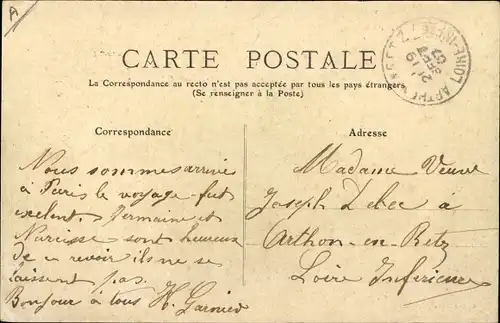 A
CARTE POSTALE
La Correspondance au recto n'est pas acceptée par tous les pays étrangers
(Se renseigner à la Poste)
Correspondance
Nous sommes arrivée
à Paris le voyage fut
exelent. Germaine et
Narcisse sont heureux
De revoir ils ne se
laissent pas.
Bonjour à tous H. Garnier
Adresse
Madame Veuve
Joseph à
Arthon-en-Retz
Loire Inférieure